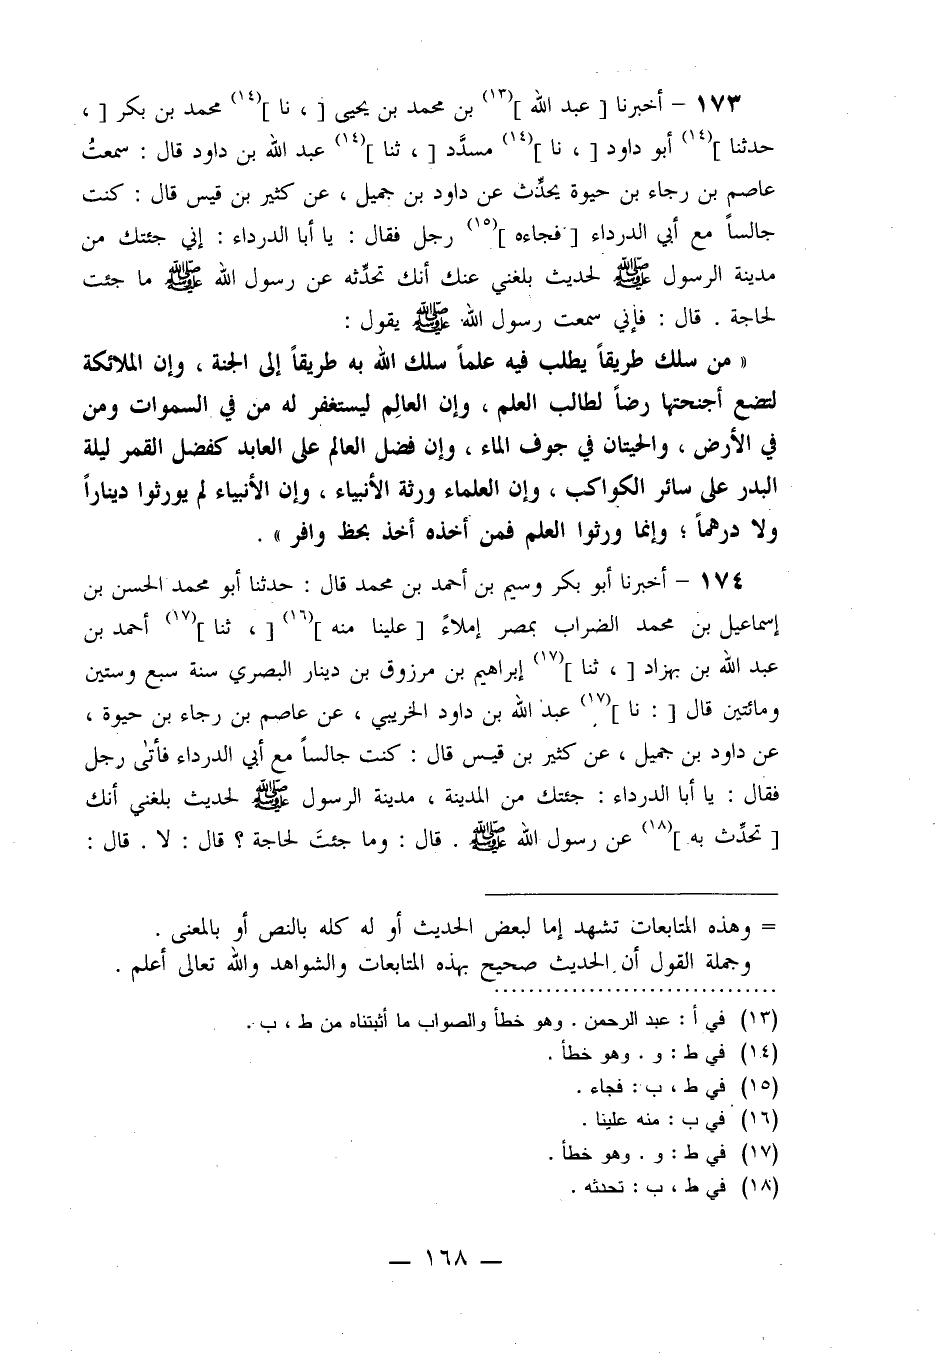 ١٧٣ – أخبرنا [ عبد الله ](١٣) بن محمد بن يحيى [ ، نا ](١٤) محمد بن بكر [ ،
حدثنا ](١٤) أبو داود [ ، نا ](١٤) مسدَّد [ ، ثنا ](١٤) عبد الله بن داود قال : سمعتُ
عاصم بن رجاء بن حيوة يحدِّث عن داود بن جميل ، عن كثير بن قيس قال : كنت
جالساً مع أبي الدرداء [ فجاءه ](١٥) رجل فقال : يا أبا الدرداء : إني جئتك من
مدينة الرسول ﷺ لحديث بلغني عنك أنك تحدِّثه عن رسول الله ﷺ ما جئت
لحاجة . قال : فإني سمعت رسول الله ﷺ يقول :
« من سلك طريقاً يطلب فيه علماً سلك الله به طريقاً إلى الجنة ، وإن الملائكة
لتضع أجنحتها رضاً لطالب العلم ، وإن العالِم ليستغفر له من في السموات ومن
في الأرض ، والحيتان في جوف الماء ، وإن فضل العالم على العابد كفضل القمر ليلة
البدر على سائر الكواكب ، وإن العلماء ورثة الأنبياء ، وإن الأنبياء لم يورثوا ديناراً
ولا درهماً ؛ وإنما ورثوا العلم فمن أخذه أخذ بحظ وافر » .
١٧٤ – أخبرنا أبو بكر وسيم بن أحمد بن محمد قال : حدثنا أبو محمد الحسن بن
إسماعيل بن محمد الضراب بمصر إملاءً [ علينا منه ](١٦) [ ، ثنا ](١٧) أحمد بن
عبد الله بن بهزاد [ ، ثنا ](١٧) إبراهيم بن مرزوق بن دينار البصري سنة سبع وستين
ومائتين قال [ : نا ](١٧) عبد الله بن داود الخريبي ، عن عاصم بن رجاء بن حيوة ،
عن داود بن جميل ، عن كثير بن قيس قال : كنت جالساً مع أبي الدرداء فأتى رجل
فقال : يا أبا الدرداء : جئتك من المدينة ، مدينة الرسول ﷺ لحديث بلغني أنك
[ تحدِّث به ](١٨) عن رسول الله ﷺ . قال : وما جئتَ لحاجة ؟ قال : لا . قال :
= وهذه المتابعات تشهد إما لبعض الحديث أو له كله بالنص أو بالمعنى .
وجملة القول أن الحديث صحيح بهذه المتابعات والشواهد والله تعالى أعلم .
(١٣) في أ : عبد الرحمن . وهو خطأ والصواب ما أثبتناه من ط ، ب .
(١٤) في ط : و . وهو خطأ .
(١٥) في ط ، ب : فجاء .
(١٦) في ب : منه علينا .
(١٧) في ط : و . وهو خطأ .
(١٨) في ط ، ب : تحدثه .
— ١٦٨ —